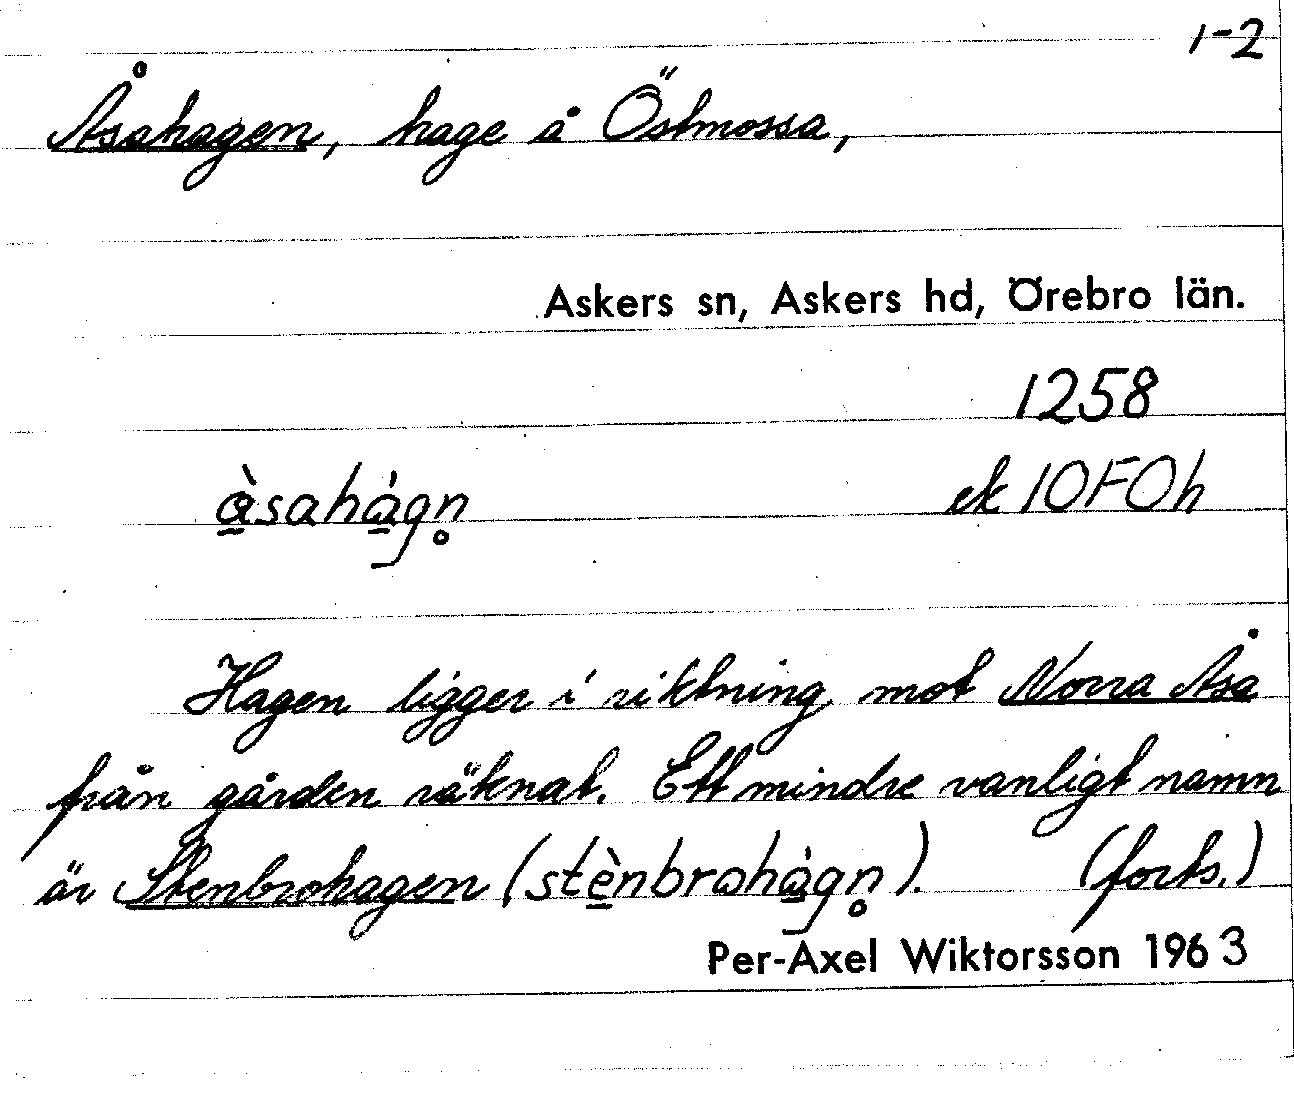 1-2
Åsahagen, hage å Östmossa,
Askers sn, Askers hd, Örebro län.
1258
àsahágn̥ ek 10F0h
Hagen ligger i riktning mot Norra Åsa
från gården räknat. Ett mindre vanligt namn
är Stenbrohagen (stènbrohágn̥). (forts.)
Per-Axel Wiktorsson 1963